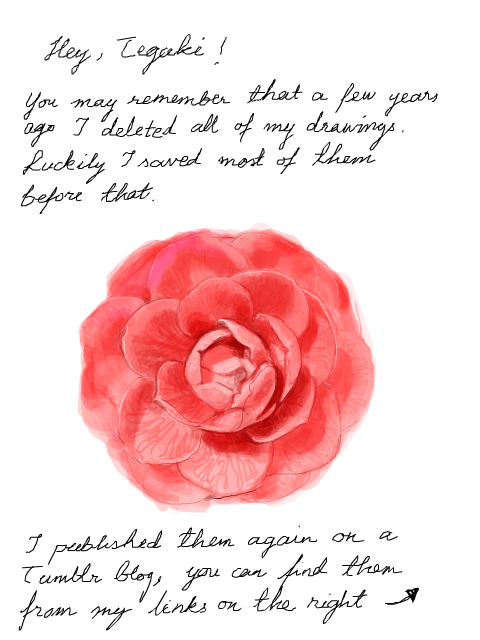 Hey, Tegaki!
You may remember that a few years
ago I deleted all of my drawings.
Luckily I saved most of them
before that.
I published them again on a
Tumblr blog, you can find them
from my links on the right